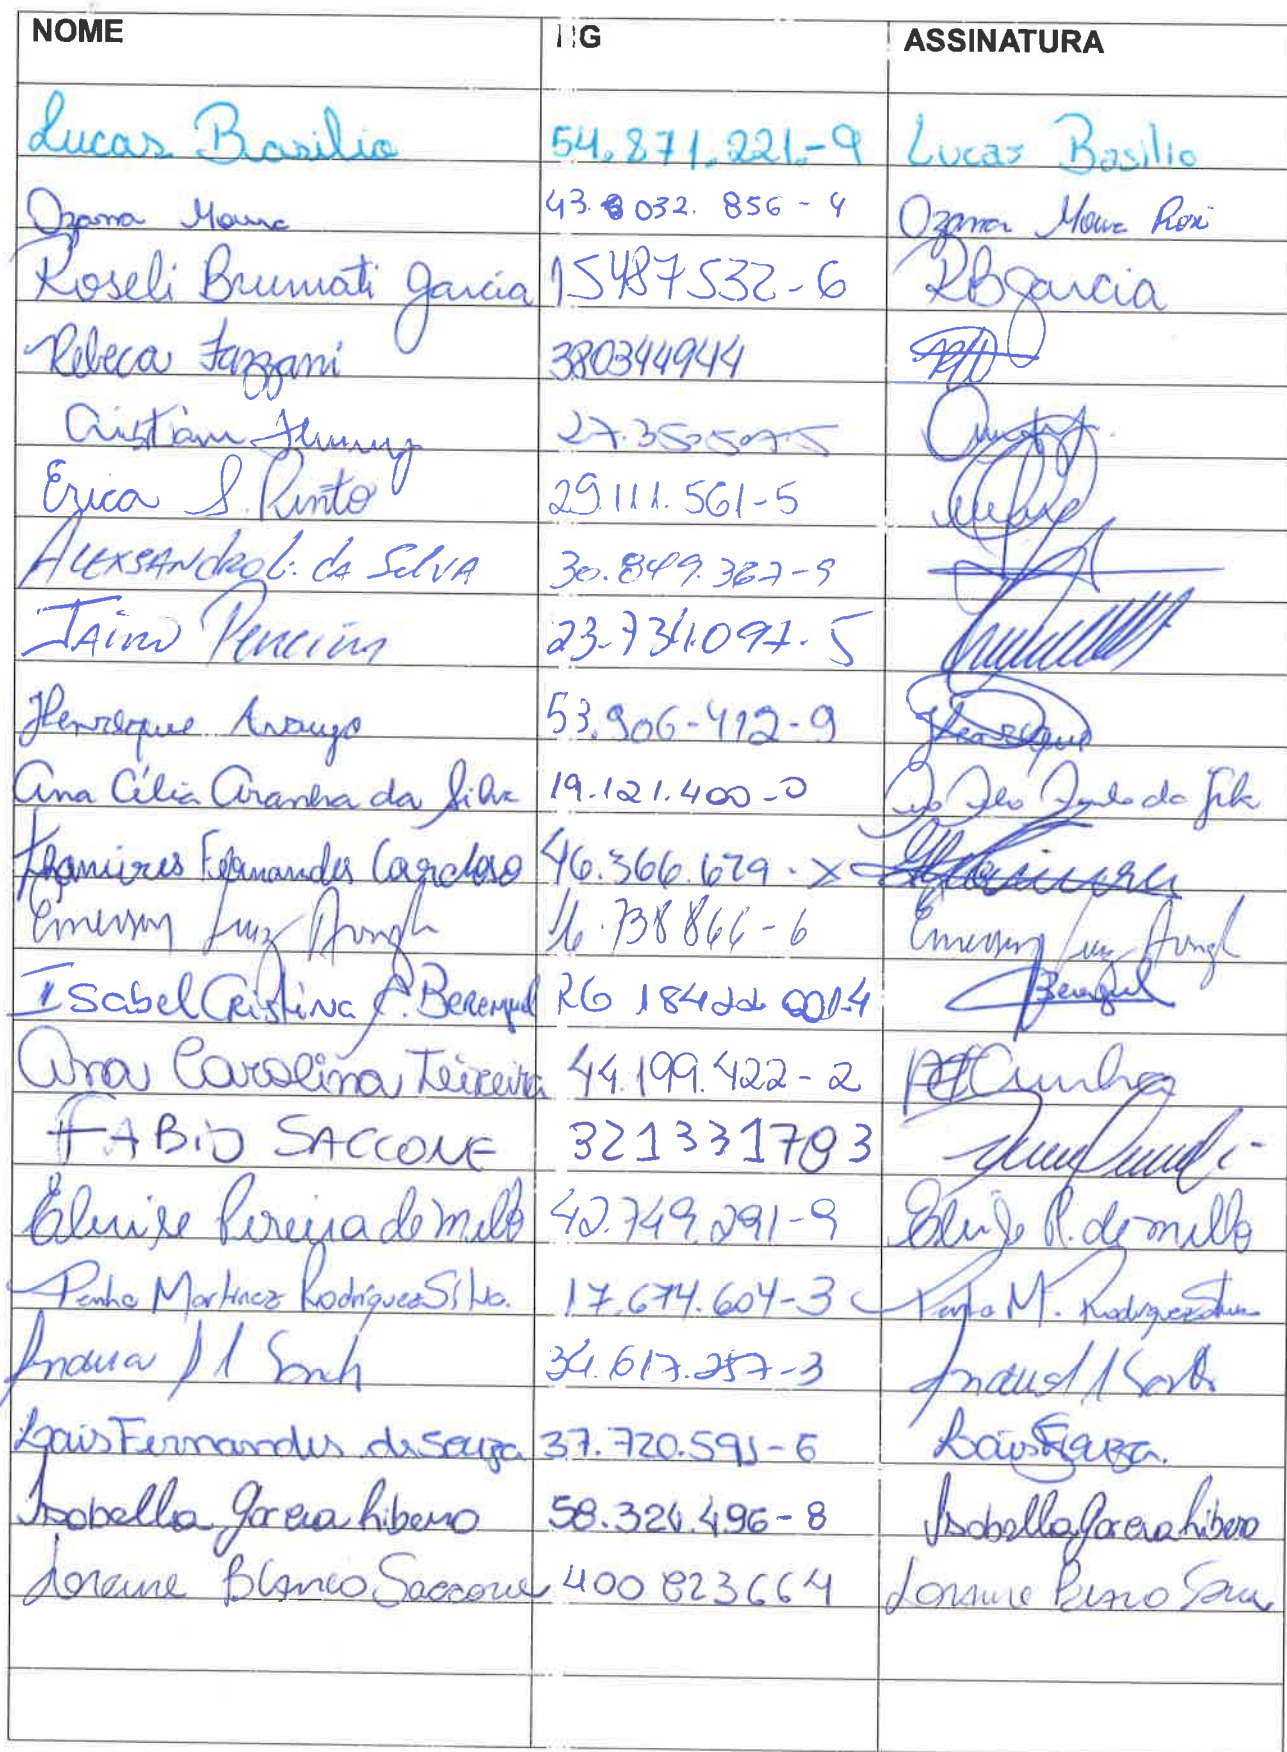 NOME RG ASSINATURA
Lucas Brasilio 54.871.221-9 Lucas Basilio
Ozama Moura 43.8032.856-4 Ozama Moura
Roseli Brumati Garcia 15487532-6 RBgarcia
Rebeca Fazzani 380344944
Cristiam 27.350.507-5
Erica S. Pinto 29.111.561-5
ALEXSANdRo L. dA SilVA 30.849.367-9
JAiro Pereira 23.734.097-5
Henrique Araujo 53.906-412-9 Henrique
Ana Célia Aranha da Silva 19.121.400-0 da Silva
Thamires Fernandes Cardoso 46.366.679-X
Emerson Luiz 16.738866-6 Emerson Luiz
Isabel Cristina P. Berenguel RG 18422 0014 Berenguel
Ana Carolina Teixeira 44.199.422-2 ATCunha
FABiO SACCONE 321331783
Eluise Pereira de mello 42.749.291-9 Eluise P. de mello
Penha Martinez Rodrigues Silva. 17.674.604-3 M. Rodrigues Silva
34.617.257-3
Lais Fernandes de Souza 37.720.591-6 Lais Souza.
Isabella Garcia Ribeiro 58.324.496-8 Isabella Garcia Ribeiro
Loraine Blanco Saccone 400823664 Loraine